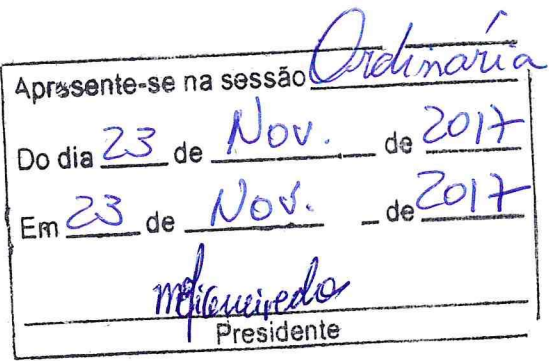 Apresente-se na sessão Ordinária
Do dia 23 de Nov. de 2017
Em 23 de Nov. de 2017
MFigueiredo
Presidente